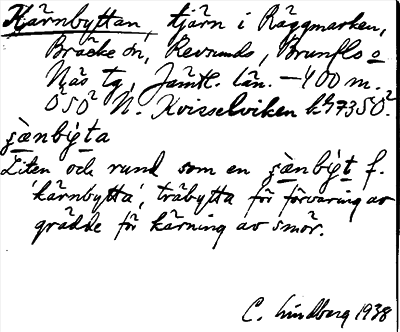 Kärnbyttan, tjärn i Räggmarken,
Bräcke sn, Revsunds, Brunflo o
Näs tg, Jämtl. län. — 400 m.
Ö50² N. Kvisselviken kbl 7350².
şæ̀nbi̯ta
Liten och rund som en şæ̀nbi̯t f.
'kärnbytta', träbytta för förvaring av
grädde för kärning av smör.
C. Lindberg 1938